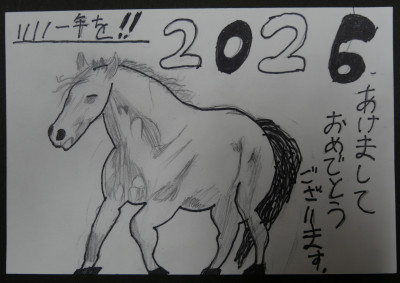 いい一年を!!
2026
あけまして
おめでとう
ございます。